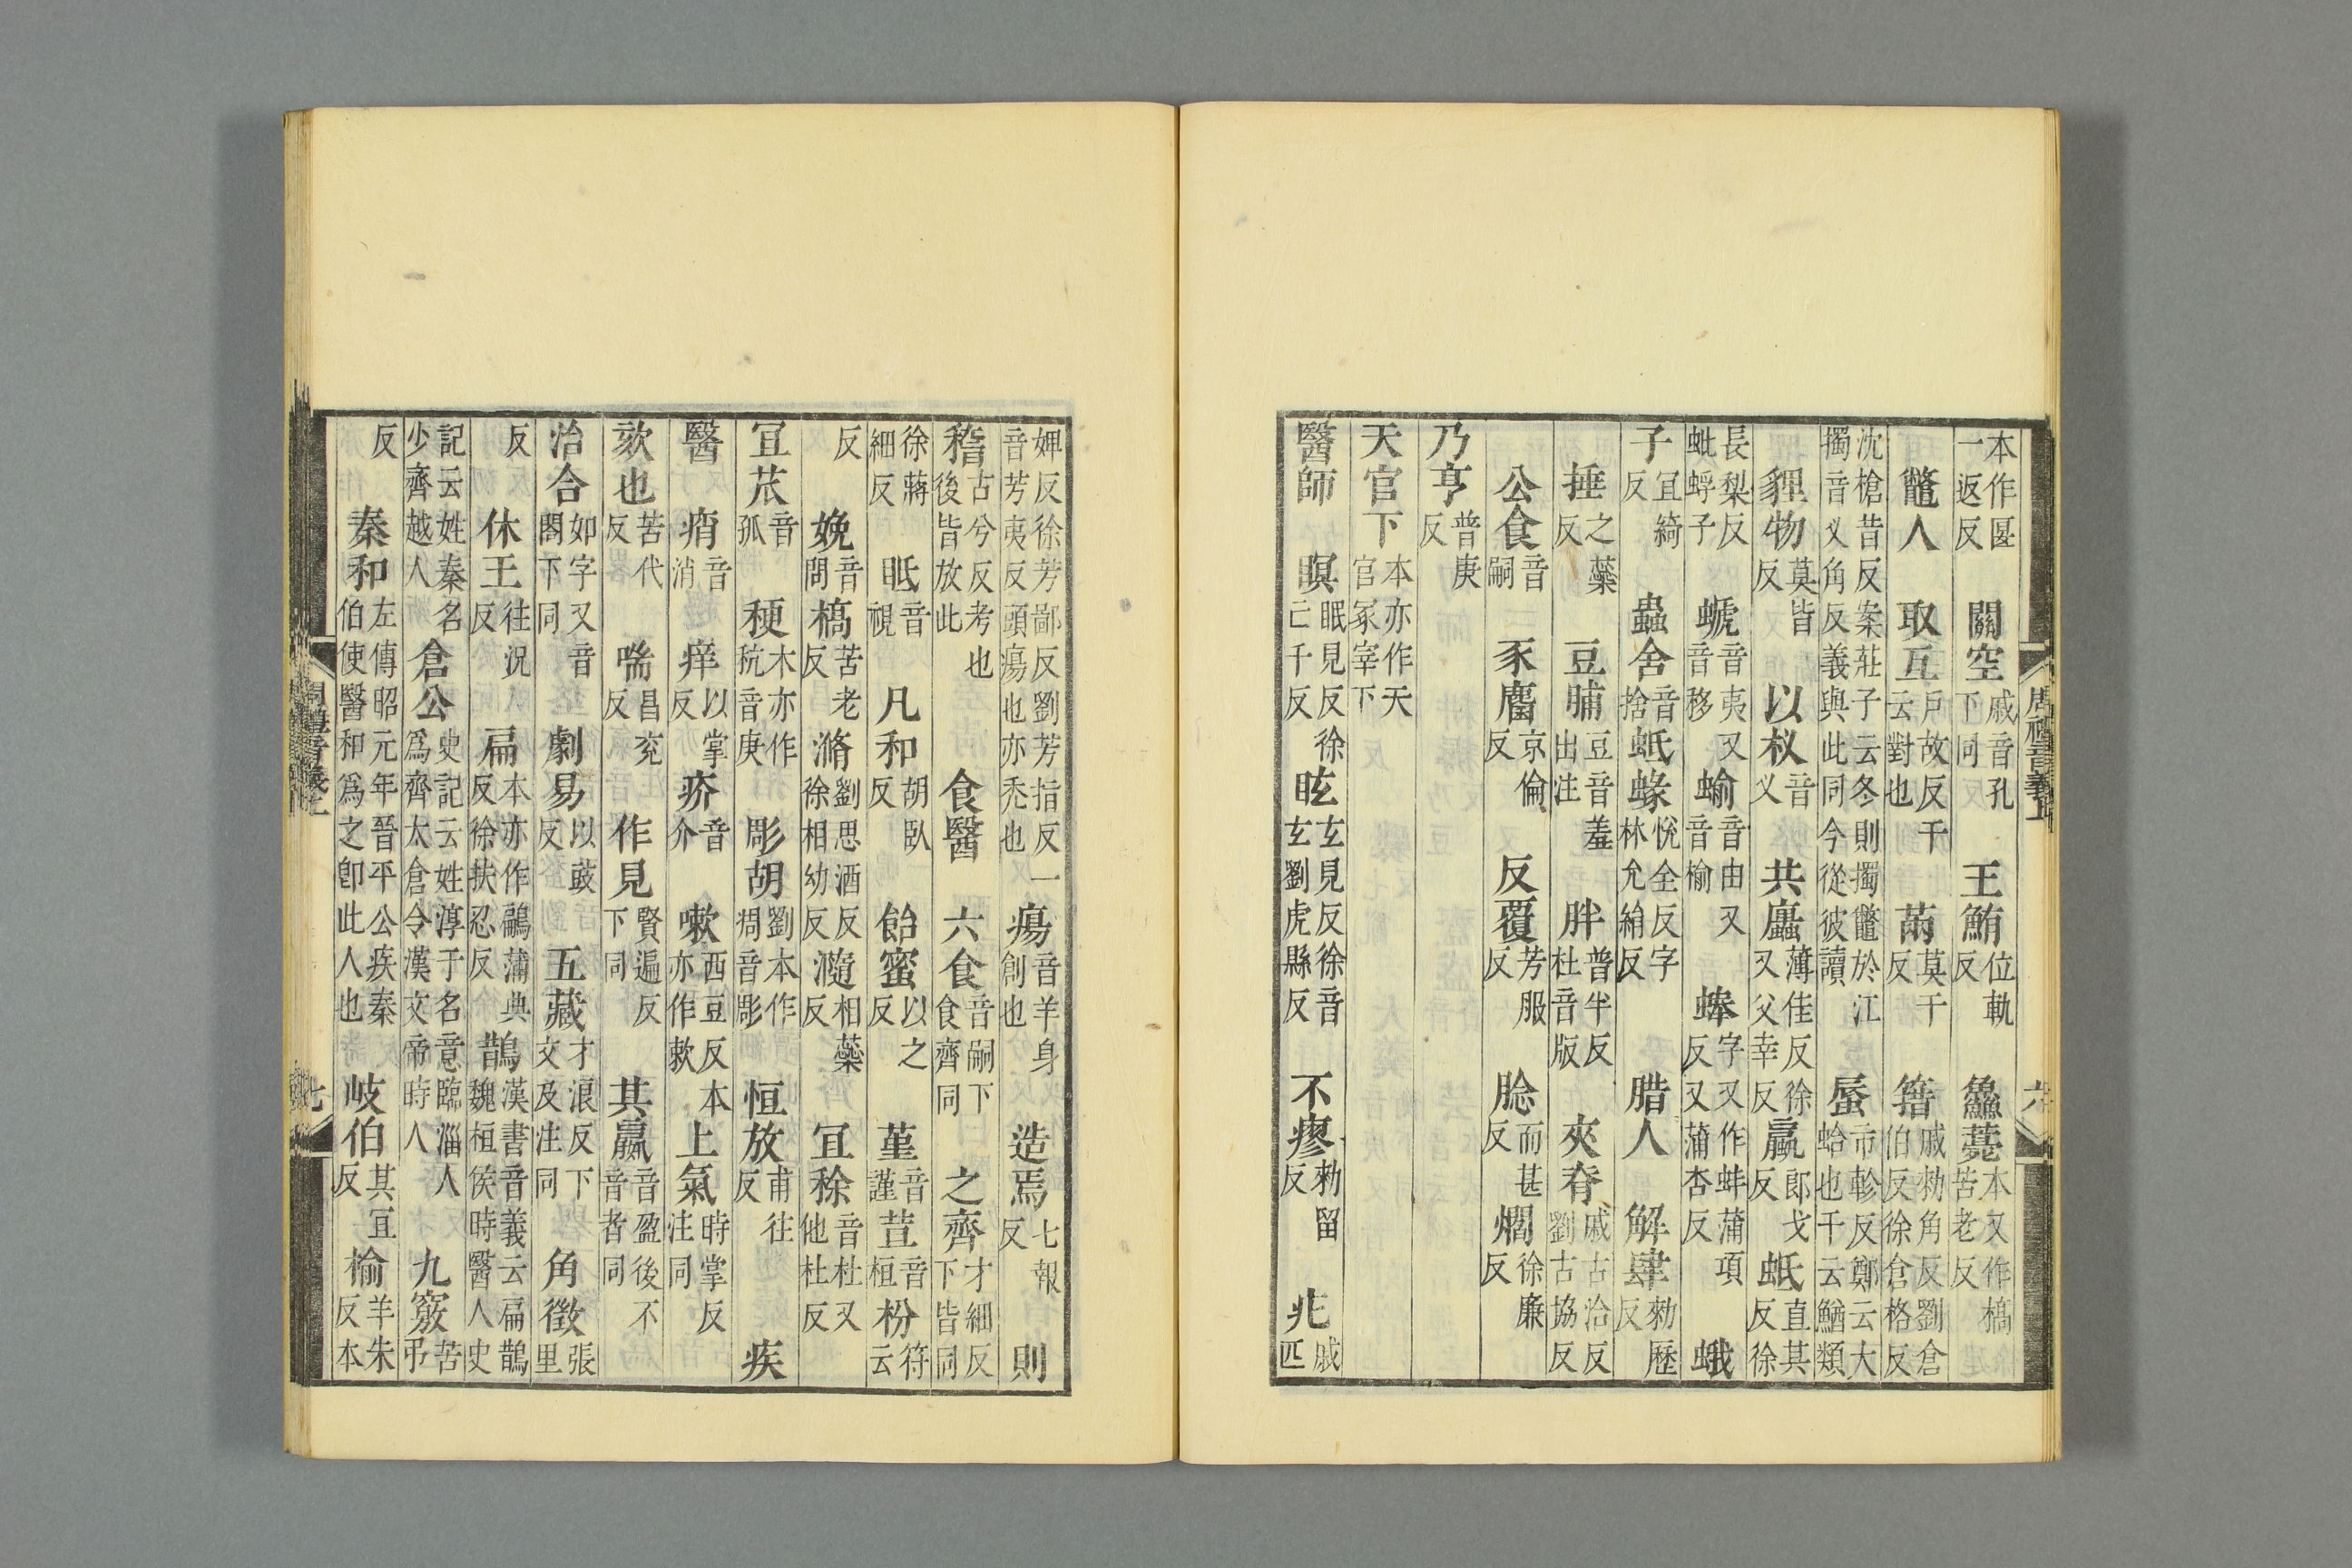 本作匽一返反　關空戚音孔下同　王鮪位軌反　鱻薧本又作槁苦老反
鼈人　取互戶故反干云對也　萳莫干反　簎戚勑角反劉倉伯反徐倉格反
沈槍昔反案莊子云冬則擉鼈於江擉音义角反義與此同今從彼讀　蜃市軫反鄭云大蛤也干云鰌類
貍物莫皆反　以杈音义　共蠯薄佳反徐又父幸反　蠃郎戈反　蚳直其反徐
長梨反蚍蜉子　螔音夷又音移　蝓音由又音榆　蜯字又作蚌蒲項反又蒲杏反　蛾
子宜綺反　蟲舍音捨　蚳蝝悅全反字林允絹反　腊人　解肆勑歷反
捶之蘂反　豆脯豆音羞出注　胖普半反杜音版　夾脊戚古洽反劉古協反
公食音嗣　豕麕京倫反　反覆芳服反　腍而甚反　爓徐廉反
乃亨普庚反
天官下本亦作天官冢宰下
醫師　瞑眠見反徐亡千反　眩玄見反徐音玄劉虎縣反　不瘳勑留反　㐀戚匹
周禮音義上　六
婢反徐芳鄙反劉芳指反一音芳夷反頭瘍也亦禿也　瘍音羊身創也　造焉七報反　則
稽古兮反考也後皆放此　食醫　六食音嗣下食齊同　之齊才細反下皆同
徐蔣細反　眂音視　凡和胡臥反　飴蜜以之反　菫音謹　荁音桓　枌符云
反　娩音問　槁苦老反　滫劉思酒反徐相幼反　瀡相蘂反　宜稌音杜又他杜反
宜苽音孤　稉本亦作秔音庚　彫胡劉本作凋音彫　恒放甫往反　疾
醫　痟音消　痒以掌反　疥音介　嗽西豆反本亦作欶　上氣時掌反注同
欬也苦代反　喘昌兖反　作見賢遍反下同　其贏音盈後不音者同
治合如字又音閤下同　劇易以豉反　五藏才浪反下文及注同　角徵張里
反　休王往況反　扁本亦作鶣蒲典反徐扶忍反　鵲漢書音義云扁鵲魏桓侯時醫人史
記云姓秦名少齊越人　倉公史記云姓淳于名意臨淄人爲齊太倉令漢文帝時人　九竅苦弔
反　秦和左傳昭元年晉平公疾秦伯使醫和爲之卽此人也　岐伯其宜反　榆羊朱反本
七